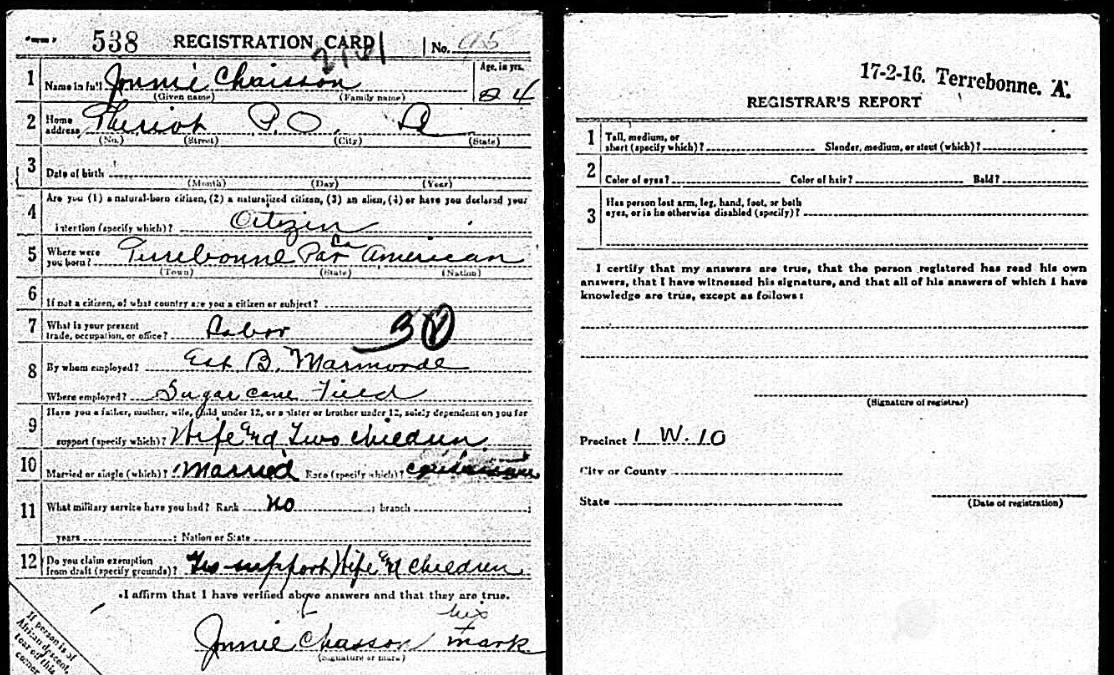 538 REGISTRATION CARD No. 95
1 Name in full Jonnie Chaisson Age, in yrs. 24
(Given name) (Family name)
2 Home address Theriot P.O. La
(No.) (Street) (City) (State)
3 Date of birth
(Month) (Day) (Year)
4 Are you (1) a natural-born citizen, (2) a naturalized citizen, (3) an alien, (4) or have you declared your
intention (specify which)? Citizen
5 Where were you born? Terrebonne Par La American
(Town) (State) (Nation)
6 If not a citizen, of what country are you a citizen or subject?
7 What is your present trade, occupation, or office? Labor
8 By whom employed? Est. B.
Where employed? Sugar cane Field
9 Have you a father, mother, wife, child under 12, or a sister or brother under 12, solely dependent on you for
support (specify which)? Wife and Two children
10 Married or single (which)? Married Race (specify which)?
11 What military service have you had? Rank no ; branch ;
years ; Nation or State
12 Do you claim exemption from draft (specify grounds)? support Wife and children
I affirm that I have verified above answers and that they are true.
his
Jonnie Chasson mark
(Signature or mark)
If person is of
African descent,
tear off this
corner
17-2-16. Terrebonne. A.
REGISTRAR'S REPORT
1 Tall, medium, or short (specify which)? Slender, medium, or stout (which)?
2 Color of eyes? Color of hair? Bald?
3 Has person lost arm, leg, hand, foot, or both
eyes, or is he otherwise disabled (specify)?
I certify that my answers are true, that the person registered has read his own
answers, that I have witnessed his signature, and that all of his answers of which I have
knowledge are true, except as follows:
(Signature of registrar)
Precinct 1 W. 10
City or County
State
(Date of registration)